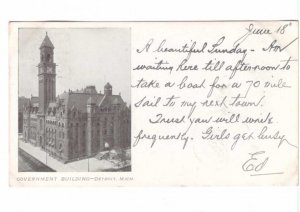 June 18
A beautiful Sunday - Am
waiting here till afternoon to
take a boat for a 70 mile
sail to my next town.
Trust you will write
frequently. Girls get busy
Ed
GOVERNMENT BUILDING—DETROIT, MICH.